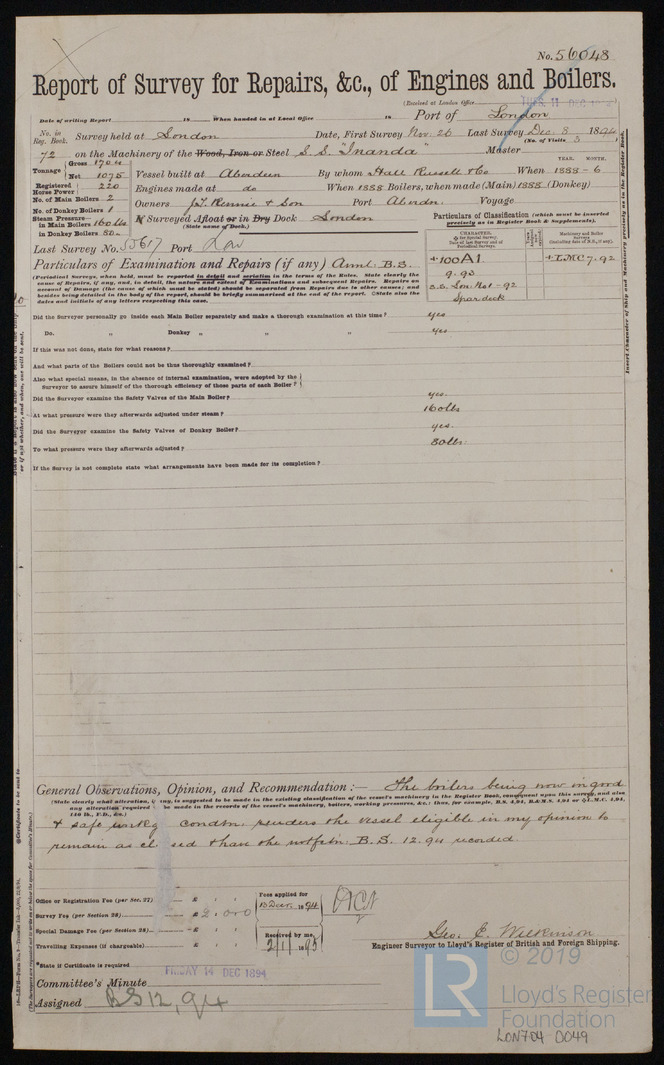 No. 56048
Report of Survey for Repairs, &c., of Engines and Boilers.
(Received at London Office
Date of writing Report 18 When handed in at Local Office 18 Port of London
No. in Reg. Book. Survey held at London Date, First Survey Nov. 26 Last Survey Dec. 8 1894
(No. of Visits 3)
72 on the Machinery of the Wood, Iron or Steel S.S. "Inanda" Master
Tonnage Gross 1704 Net 1075
Vessel built at Aberdeen By whom Hall Russell & Co When 1888-6
YEAR. MONTH.
Registered Horse Power 220
Engines made at do When 1888 Boilers, when made (Main) 1888 (Donkey)
No. of Main Boilers 2
No. of Donkey Boilers 1
Owners J.T. Rennie & Son Port Aberdn. Voyage
Steam Pressure in Main Boilers 160 lbs
in Donkey Boilers 80
If Surveyed Afloat or in Dry Dock London
(State name of Dock.)
Particulars of Classification (which must be inserted precisely as in Register Book & Supplements).
Last Survey No. 55617 Port Lon
CHARACTER.
+100A1
9.93
S.S. Lon. No1-92
Spar deck
Machinery and Boiler Surveys (including date of N.B., if any).
+LMC 7.92
Particulars of Examination and Repairs (if any) Annl. B.S.
(Periodical Surveys, when held, must be reported in detail and seriatim in the terms of the Rules. State clearly the cause of Repairs, if any, and, in detail, the nature and extent of Examinations and subsequent Repairs. Repairs on account of Damage (the cause of which must be stated) should be separated from Repairs due to other causes; and besides being detailed in the body of the report, should be briefly summarised at the end of the report. State also the dates and initials of any letters respecting this case.
Did the Surveyor personally go inside each Main Boiler separately and make a thorough examination at this time? yes
Do. " Donkey " " " yes
If this was not done, state for what reasons?
And what parts of the Boilers could not be thus thoroughly examined?
Also what special means, in the absence of internal examination, were adopted by the Surveyor to assure himself of the thorough efficiency of those parts of each Boiler?
Did the Surveyor examine the Safety Valves of the Main Boiler? yes.
At what pressure were they afterwards adjusted under steam? 160 lbs
Did the Surveyor examine the Safety Valves of Donkey Boiler? yes.
To what pressure were they afterwards adjusted? 80 lbs.
If the Survey is not complete state what arrangements have been made for its completion?
General Observations, Opinion, and Recommendation:— The boilers being now in good
& safe workg condtn. renders the vessel eligible in my opinion to
remain as cl sed B.S. 12.94 recorded.
Office or Registration Fee (per Sec. 27) £
Survey Fee (per Section 28) £2.0.0
Special Damage Fee (per Section 28) £
Travelling Expenses (if chargeable) £
Fees applied for
1894
Received by me,
2/1/1895
Geo. C. Wilkinson
Engineer Surveyor to Lloyd's Register of British and Foreign Shipping.
*State if Certificate is required
Committee's Minute FRIDAY 14 DEC 1894
Assigned BS 12,94
LR
© 2019
Lloyd's Register
Foundation
LON704 0049